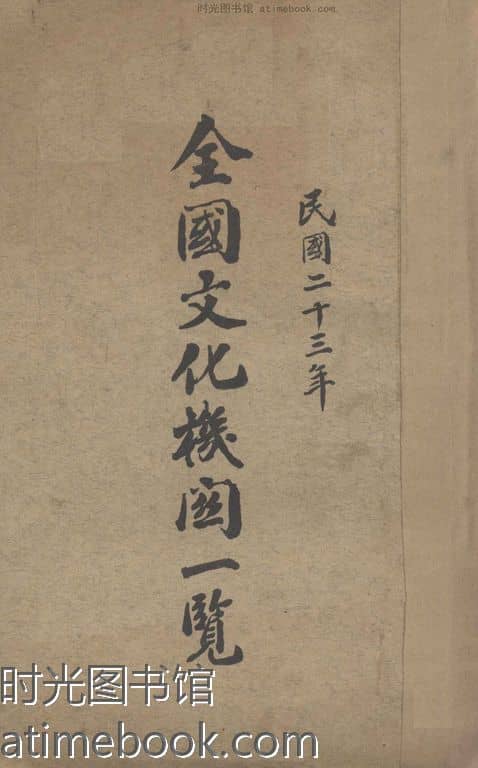 时光图书馆 atimebook.com
民國二十三年
全國文化機関一覽
时光图书馆
atimebook.com